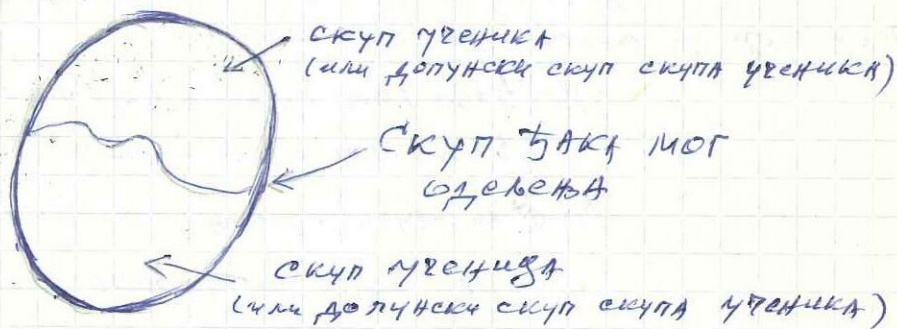 скуп ученика
(или допунски скуп скупа ученика)
Скуп ђака мог
одељења
скуп ученица
(или допунски скуп скупа ученика)